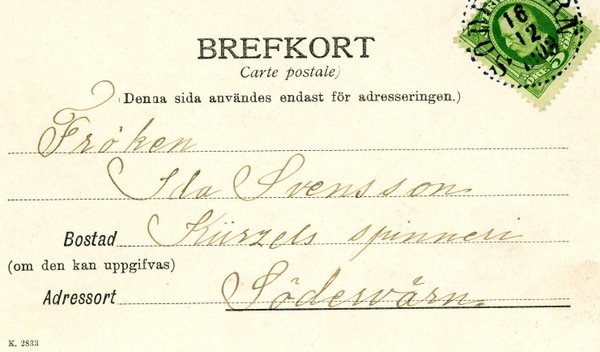 BREFKORT
Carte postale)
(Denna sida användes endast för adresseringen.)
16
12
ÖRE 5
Fröken
Ida Svensson
Bostad Kürzels spinneri
(om den kan uppgifvas)
Adressort Södervärn.
K. 2833